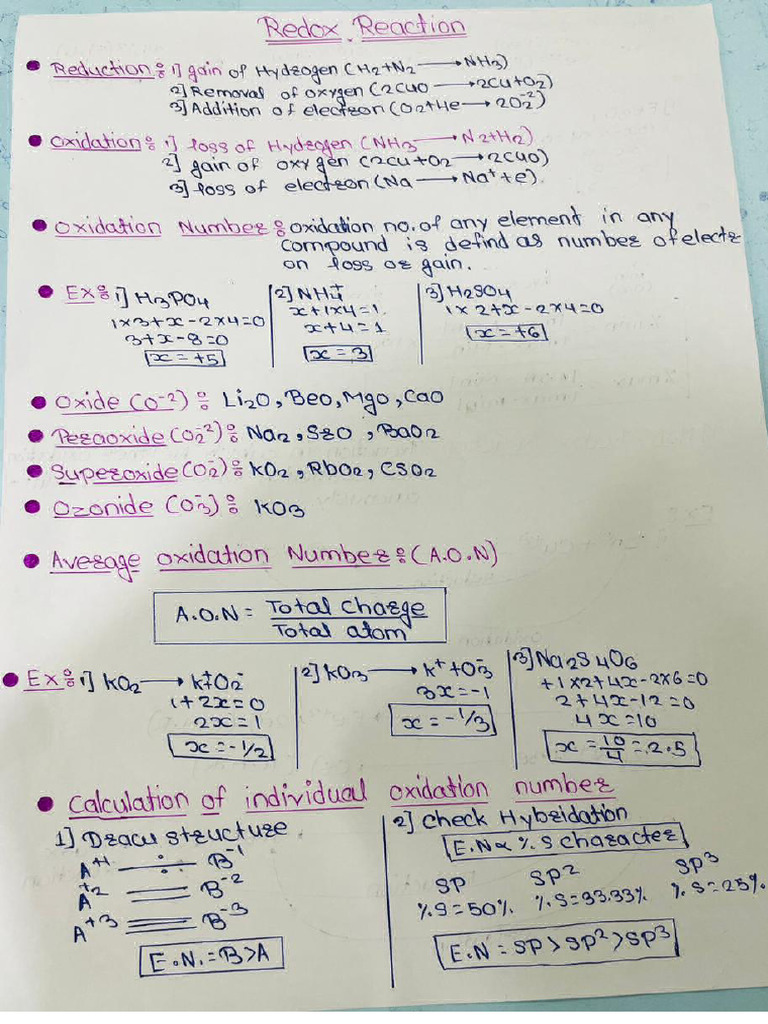 Redox Reaction
• Reduction : 1] gain of Hydrogen (H2+N2 → NH3)
2] Removal of oxygen (2CuO → 2Cu+O2)
3] Addition of electron (O2+4e → 2O2^-2)
• Oxidation : 1] loss of Hydrogen (NH3 → N2+H2)
2] gain of oxygen (2Cu+O2 → 2CuO)
3] loss of electron (Na → Na⁺+e).
• Oxidation Number : oxidation no. of any element in any
compound is defind as number of electr
on loss or gain.
• Ex : 1] H3PO4
1×3+x-2×4=0
3+x-8=0
x=+5
2] NH4⁺
x+1×4=1.
x+4=1
x=3
3] H2SO4
1×2+x-2×4=0
x=+6
• Oxide (O^-2) : Li2O, Beo, Mgo, Cao
• Peraoxide (O2^-2) : Na2, SrO, BaO2
• Superoxide (O2^-) : kO2, RbO2, CSO2
• Ozonide (O3^-) : kO3
• Average oxidation Number : (A.O.N)
A.O.N = Total charge / Total atom
• Ex : 1] kO2 → k⁺O2⁻
1+2x=0
2x=1
x=-1/2
2] kO3 → k⁺+O3⁻
3x=-1
x=-1/3
3] Na2S4O6
+1×2+4x-2×6=0
2+4x-12=0
4x=10
x=10/4=2.5
• Calculation of individual oxidation number
1] Draw structure
A^+1 —÷— B^-1
A^+2 = B^-2
A^+3 ≡ B^-3
E.N.=B>A
2] check Hybridation
E.N ∝ %S character
SP SP² SP³
%S=50%. %S=33.33% %S=25%.
E.N = SP>SP²>SP³